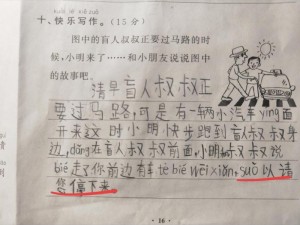 kuài lè xiě zuò
十、快乐写作。(15 分)
图中的盲人叔叔正要过马路的时
候,小明来了……和小朋友说说图中
的故事吧。
清早盲人叔叔正
要过马路,可是有一辆小汽车yíng面
开来这时小明快步跑到盲人叔叔身
边,dǎng在盲人叔叔前面,小明对叔叔说
bié走了你前边有车tè bié wēi xiǎn,suǒ以请
您停下来
· 16 ·